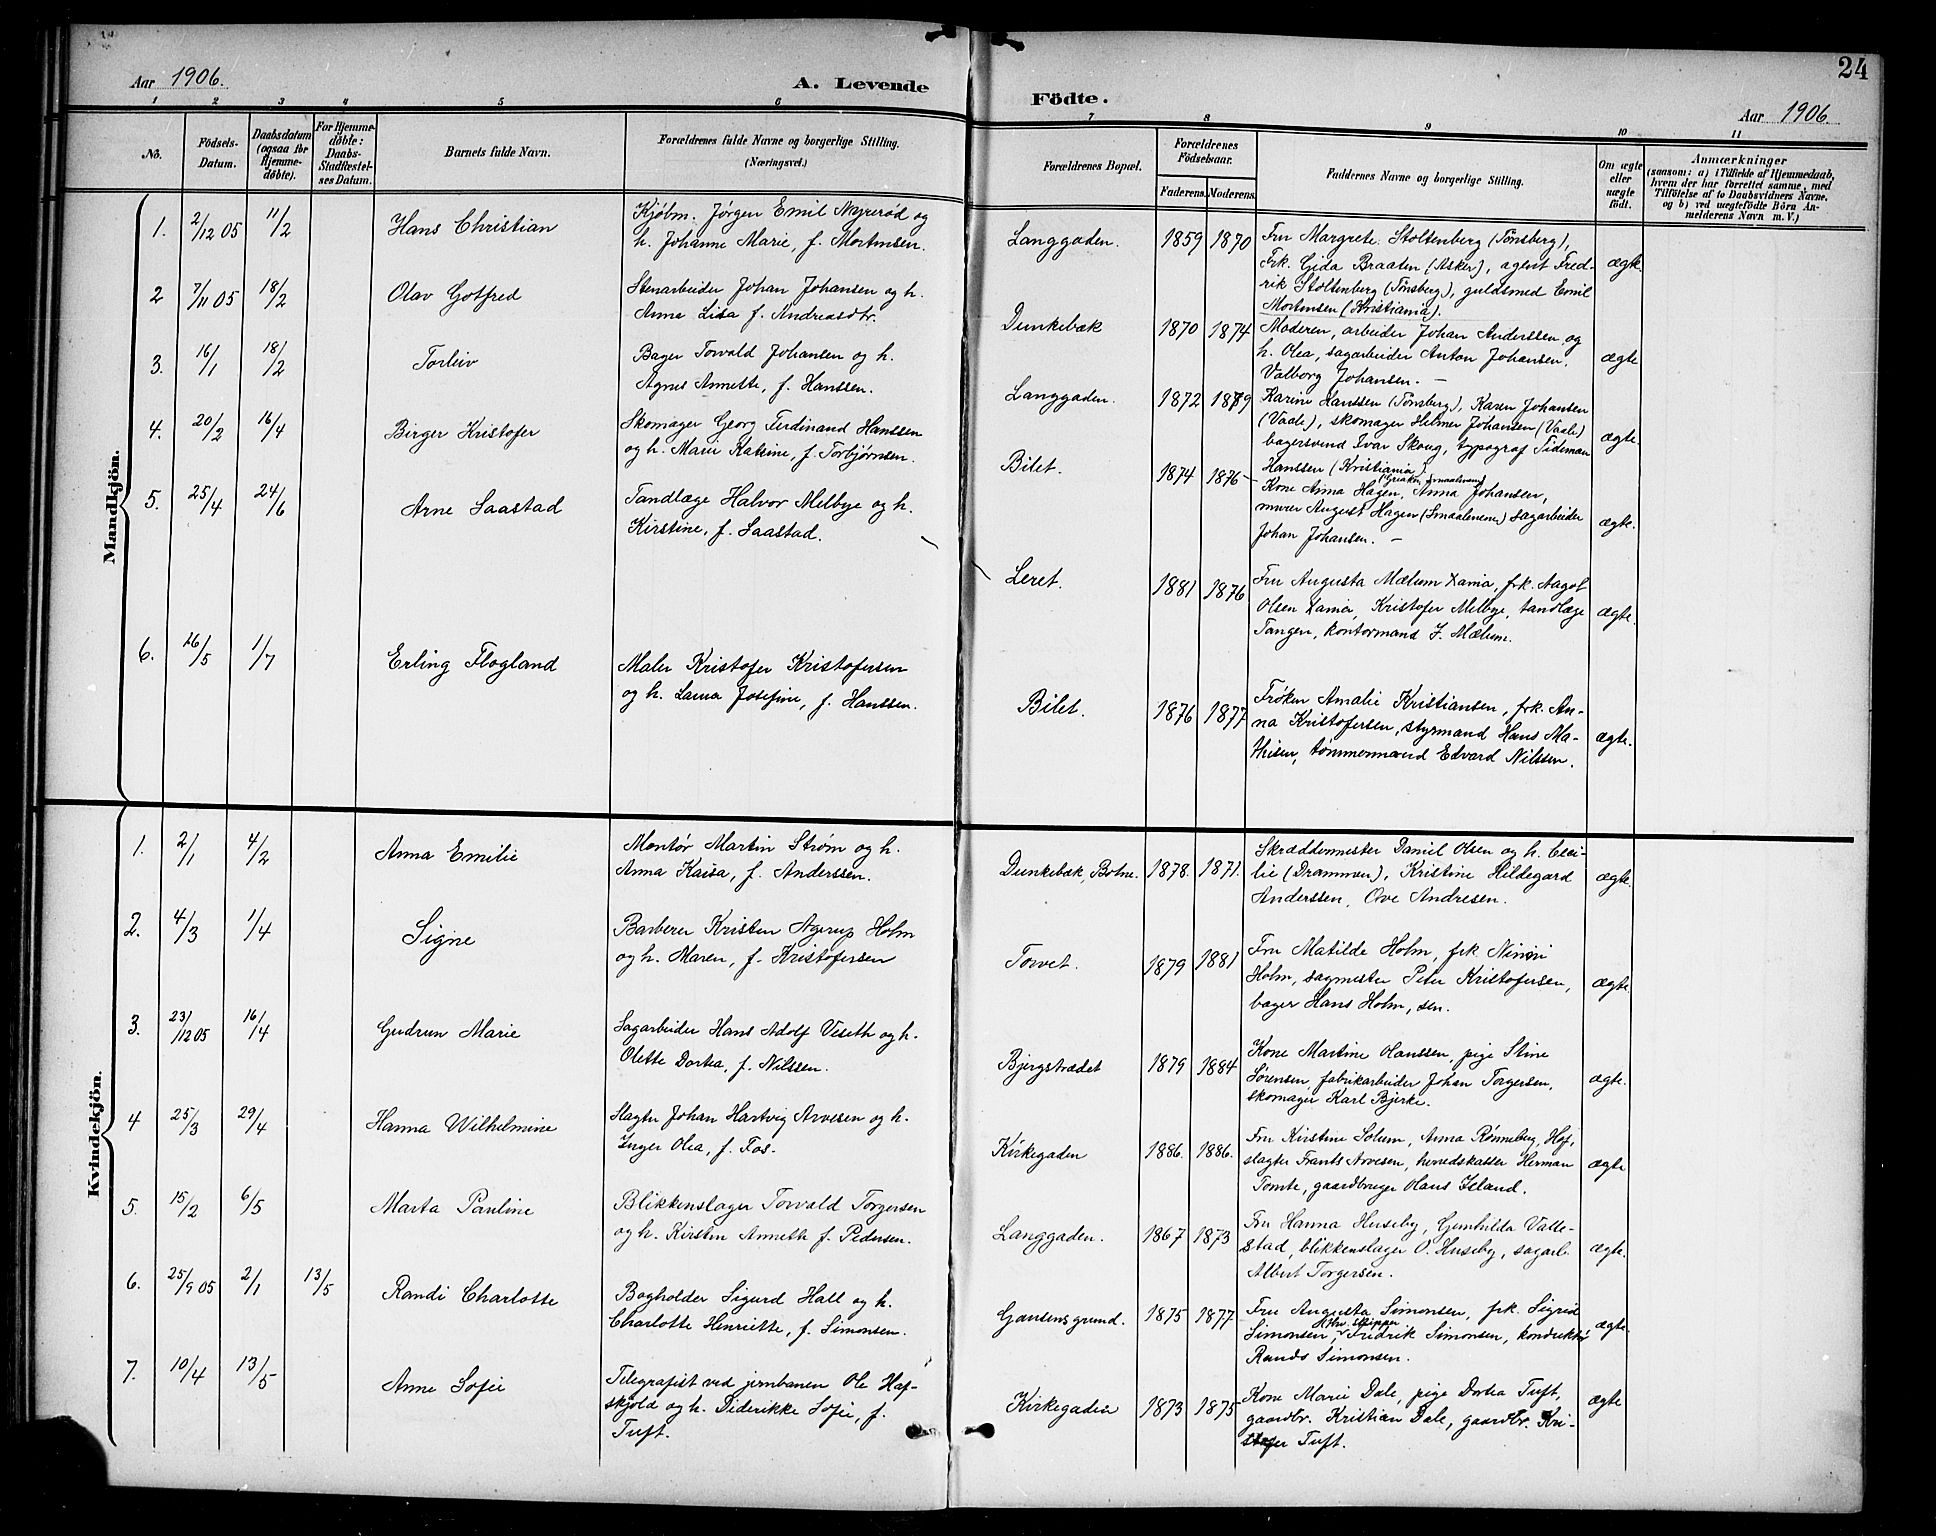 24
Aar 1906.
A. Levende
Födte.
Aar 1906.
1 2 3 4 5 6 7 8 9 10 11
No.
Födsels-
Datum.
Daabsdatum
(ogsaa for
Hjemme-
døbte).
For Hjemme-
døbte:
Daabs-
Stadfæstel-
ses Datum.
Barnets fulde Navn.
Forældrenes fulde Navne og borgerlige Stilling.
(Næringsvei.)
Forældrenes Bopæl.
Forældrenes
Födselsaar.
Faderens. Moderens.
Faddernes Navne og borgerlige Stilling.
Om ægte
eller
uægte
födt.
Anmærkninger
(saasom: a) i Tilfælde af Hjemmedaab,
hvem der har forrettet samme, med
Tilføielse af to Daabsvidners Navne.
og b) ved uægtefödte Börn An-
melderens Navn m. V.)
Mandkjön.
1. 2/12 05 11/2 Hans Christian
Kjøbm. Jørgen Emil Nyrerød og
h. Johanne Marie, f. Mortensen.
Langgaden. 1859 1870
Fru Margrete Stoltenberg (Tønsberg),
Frk. Gida Braaten (Asker), agent Fred-
rik Stoltenberg (Tønsberg), guldsmed Emil
Mortensen (Kristiania).
ægte.
2 7/11 05 18/2 Olav Gotfred
Stenarbeider Johan Johansen og h.
Anna Lisa f. Andreasdtr.
Dunkebæk 1870 1874
Moderen, arbeider Johan Anderssen og
h. Olea, sagarbeider Anton Johansen.
Valborg Johansen. —
ægte
3. 16/1 18/2 Torleiv
Bager Torvald Johansen og h.
Agnes Annette, f. Hanssen.
Langgaden. 1872 1879
Karine Hanssen (Tønsberg), Karen Johansen
(Vaale), skomager Helmer Johansen (Vaale)
bagersvend Ivar Skoug, typograf Tideman
Hanssen (Kristiania).
ægte.
4. 20/2 16/4 Birger Kristofer
Skomager Georg Ferdinand Hanssen
og h. Marie Katrine, f. Torbjørnsen.
Bilet. 1874 1876
Kone Anna Hagen, Anna Johansen,
murer August Hagen (Smaalenene) sagarbeider
Johan Johansen. —
ægte.
5. 25/4 24/6 Arne Saastad
Tandlæge Halvor Melbye og h.
Kirstine, f. Saastad.
Leret. 1881 1876
Fru Augusta Mælum Xania, frk. Aagot
Olsen Xania, Kristofer Melbye, tandlæge
Tangen, kontormand J. Mælum.
ægte.
6. 26/5 1/7 Erling Flogland
Maler Kristofer Kristofersen
og h. Laura Josefine, f. Hanssen.
Bilet. 1876 1877
Frøken Amalie Kristiansen, frk. An-
na Kristofersen, styrmand Hans Ma-
thisen, tømmermand Edvard Nilssen.
ægte.
Kvindekjön.
1. 2/1 4/2 Anna Emilie
Montør Martin Strøm og h.
Anna Kaisa, f. Anderssen.
Dunkebæk, Botne. 1878. 1871.
Skræddermester Daniel Olsen og h. Ceci-
lie (Drammen), Kristine Hildegard
Anderssen, Ove Andresen.
ægte.
2. 4/3 1/4 Signe
Barberer Kristen Agerup Holm
og h. Maren, f. Kristofersen
Torvet. 1879 1881
Fru Matilde Holm, frk Ninni
Holm, sagmester Peter Kristofersen,
bager Hans Holm, sen.
ægte.
3. 23/12 05 16/4 Gudrun Marie
Sagarbeider Hans Adolf Viseth og h.
Olette Dortea, f. Nilssen.
Bjergstrædet 1879 1884
Kone Martine Hanssen, pige Stine
Sørensen, fabrikarbeider Johan Torgersen,
skomager Karl Bjerke.
ægte.
4 25/3 29/4 Hanna Wilhelmine
Slagter Johan Hartvig Arvesen og h.
Inger Olea, f. Fos.
Kirkegaden 1886. 1886.
Fru Kirstine Solum, Anna Rønneberg, Hof,
slagter Frants Arvesen, herredskasser Herman
Tomte, gaardbruger Hans Island.
ægte
5. 15/2 6/5 Marta Pauline
Blikkenslager Torvald Torgersen
og h. Kirsten Anneth f. Pedersen.
Langgaden. 1867 1873
Fru Hanna Huseby, Gunhilda Valle-
stad, blikkenslager O. Huseby, sagarb.
Albert Torgersen.
ægte.
6. 25/9 05 2/1 13/5 Randi Charlotte
Bogholder Sigurd Hall og h.
Charlotte Henriette, f. Simonsen.
Gausensgrund. 1875 1877
Fru Augusta Simonsen, frk. Sigrid
Simonsen, Fredrik Simonsen, konduktør
Rands Simonsen.
ægte.
7. 10/4 13/5 Anne Sofie
Telegrafist ved jernbanen Ole Haf-
skjold og h. Diderikke Sofie, f.
Tuft.
Kirkegaden 1873 1875
Kone Marie Dale, pige Dortea Tuft,
gaardbr. Kristian Dale, gaardbr. Kri-
stofer Tuft.
ægte